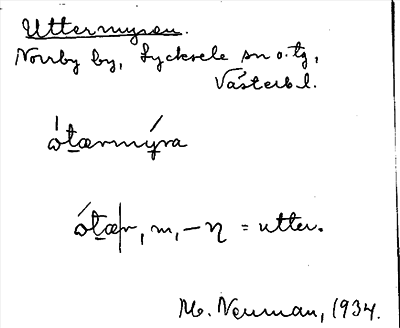 Uttermyran.
Norrby by, Lycksele sn o. tg,
Västerb l.
ótærmýra
ótæ|r, m, -η = utter.
M. Neuman, 1934.